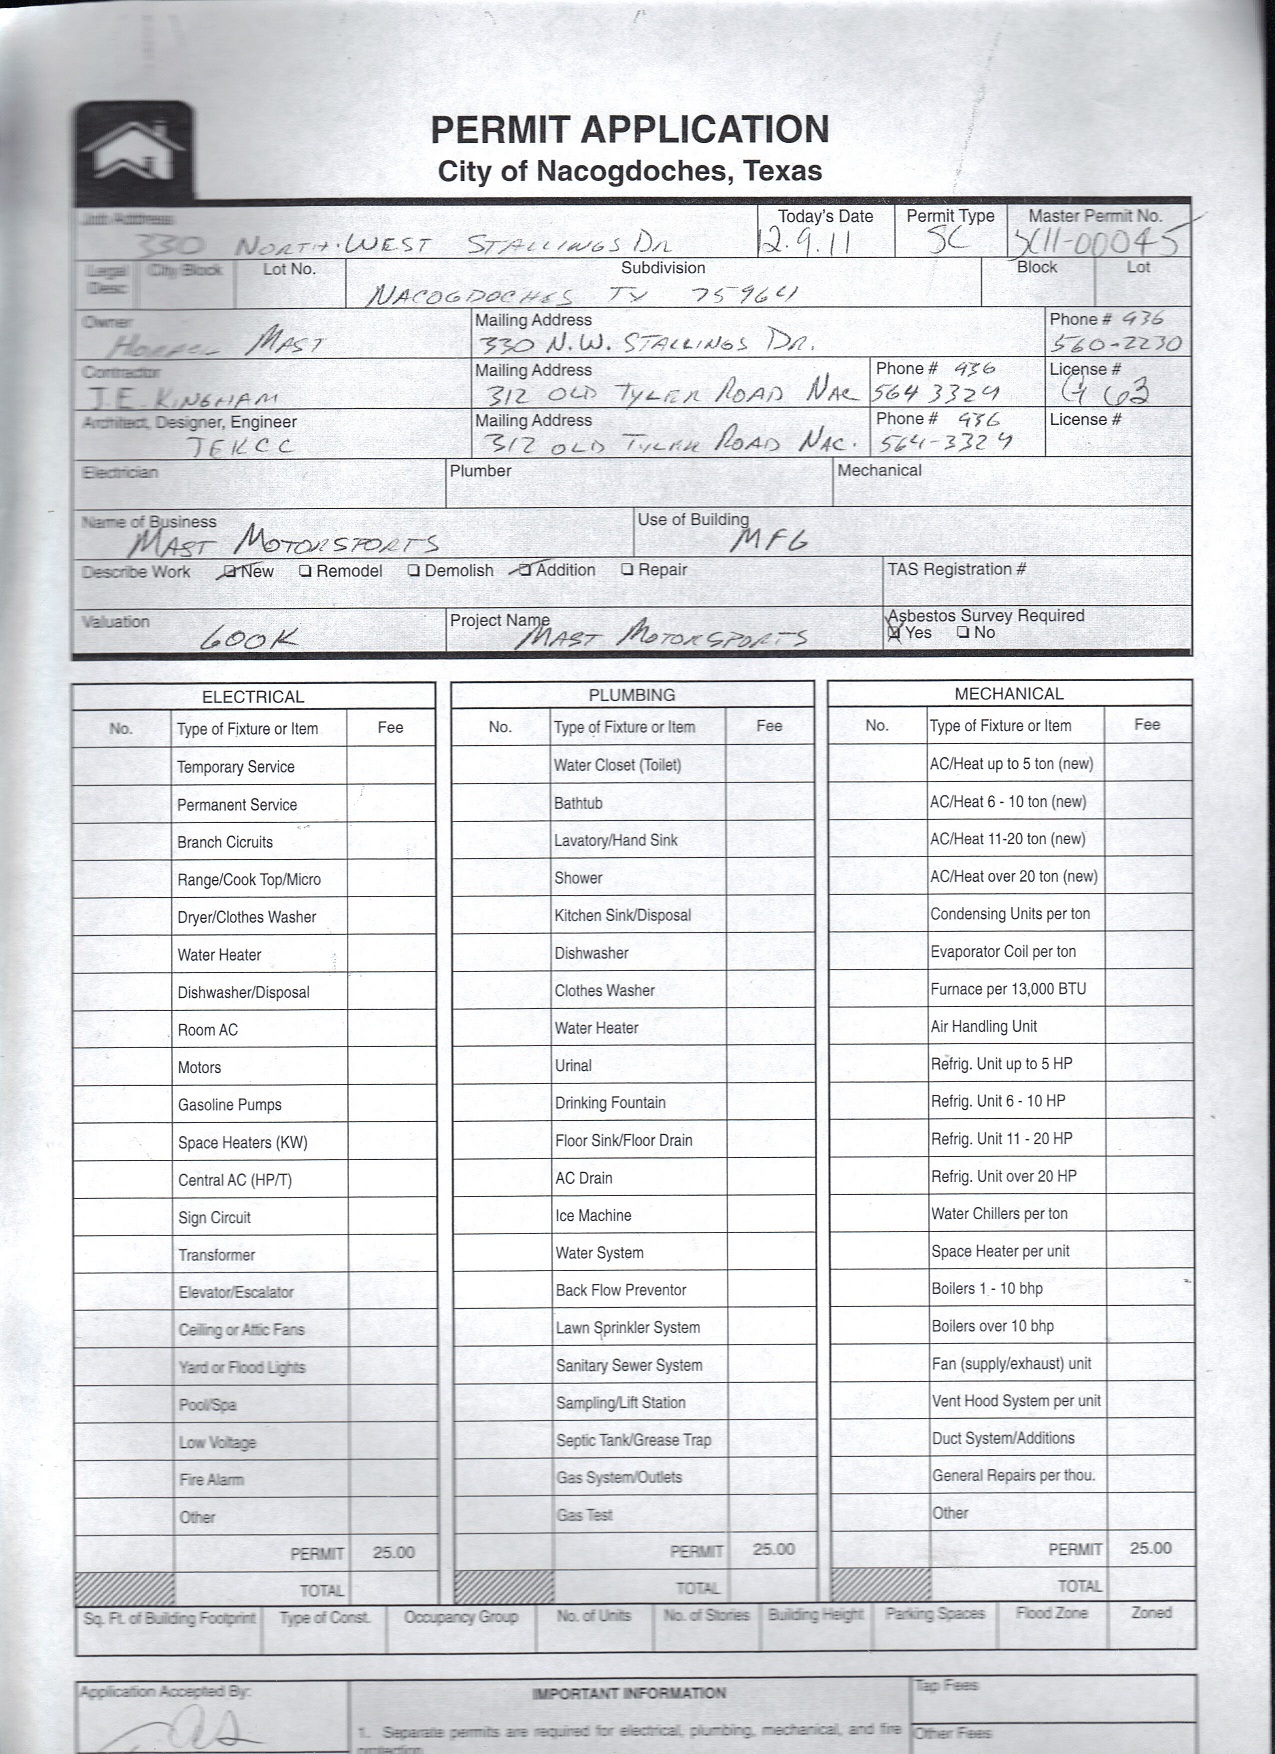 PERMIT APPLICATION
City of Nacogdoches, Texas
Job Address Today's Date Permit Type Master Permit No.
330 NORTH-WEST STALLINGS DR 12.9.11 SC SC11-00045
Legal Desc: City Block Lot No. Subdivision Block Lot
NACOGDOCHES TX 75964
Owner Mailing Address Phone # 936
MAST 330 N.W. STALLINGS DR. 560-2230
Contractor Mailing Address Phone # 936 License #
J.E. KINGHAM 312 OLD TYLER ROAD NAC 564 3329 G 63
Architect, Designer, Engineer Mailing Address Phone # 936 License #
JEKCC 312 OLD TYLER ROAD NAC. 564-3329
Electrician Plumber Mechanical
Name of Business Use of Building
MAST MOTORSPORTS MFG
Describe Work New Remodel Demolish Addition Repair TAS Registration #
Valuation Project Name Asbestos Survey Required
600K MAST MOTORSPORTS Yes No
ELECTRICAL PLUMBING MECHANICAL
No. Type of Fixture or Item Fee No. Type of Fixture or Item Fee No. Type of Fixture or Item Fee
Temporary Service Water Closet (Toilet) AC/Heat up to 5 ton (new)
Permanent Service Bathtub AC/Heat 6 - 10 ton (new)
Branch Cicruits Lavatory/Hand Sink AC/Heat 11-20 ton (new)
Range/Cook Top/Micro Shower AC/Heat over 20 ton (new)
Dryer/Clothes Washer Kitchen Sink/Disposal Condensing Units per ton
Water Heater Dishwasher Evaporator Coil per ton
Dishwasher/Disposal Clothes Washer Furnace per 13,000 BTU
Room AC Water Heater Air Handling Unit
Motors Urinal Refrig. Unit up to 5 HP
Gasoline Pumps Drinking Fountain Refrig. Unit 6 - 10 HP
Space Heaters (KW) Floor Sink/Floor Drain Refrig. Unit 11 - 20 HP
Central AC (HP/T) AC Drain Refrig. Unit over 20 HP
Sign Circuit Ice Machine Water Chillers per ton
Transformer Water System Space Heater per unit
Elevator/Escalator Back Flow Preventor Boilers 1 - 10 bhp
Ceiling or Attic Fans Lawn Sprinkler System Boilers over 10 bhp
Yard or Flood Lights Sanitary Sewer System Fan (supply/exhaust) unit
Pool/Spa Sampling/Lift Station Vent Hood System per unit
Low Voltage Septic Tank/Grease Trap Duct System/Additions
Fire Alarm Gas System/Outlets General Repairs per thou.
Other Gas Test Other
PERMIT 25.00 PERMIT 25.00 PERMIT 25.00
TOTAL TOTAL TOTAL
Sq. Ft. of Building Footprint Type of Const. Occupancy Group No. of Units No. of Stories Building Height Parking Spaces Flood Zone Zoned
Application Accepted By: IMPORTANT INFORMATION Tap Fees
1. Separate permits are required for electrical, plumbing, mechanical, and fire Other Fees
protection.